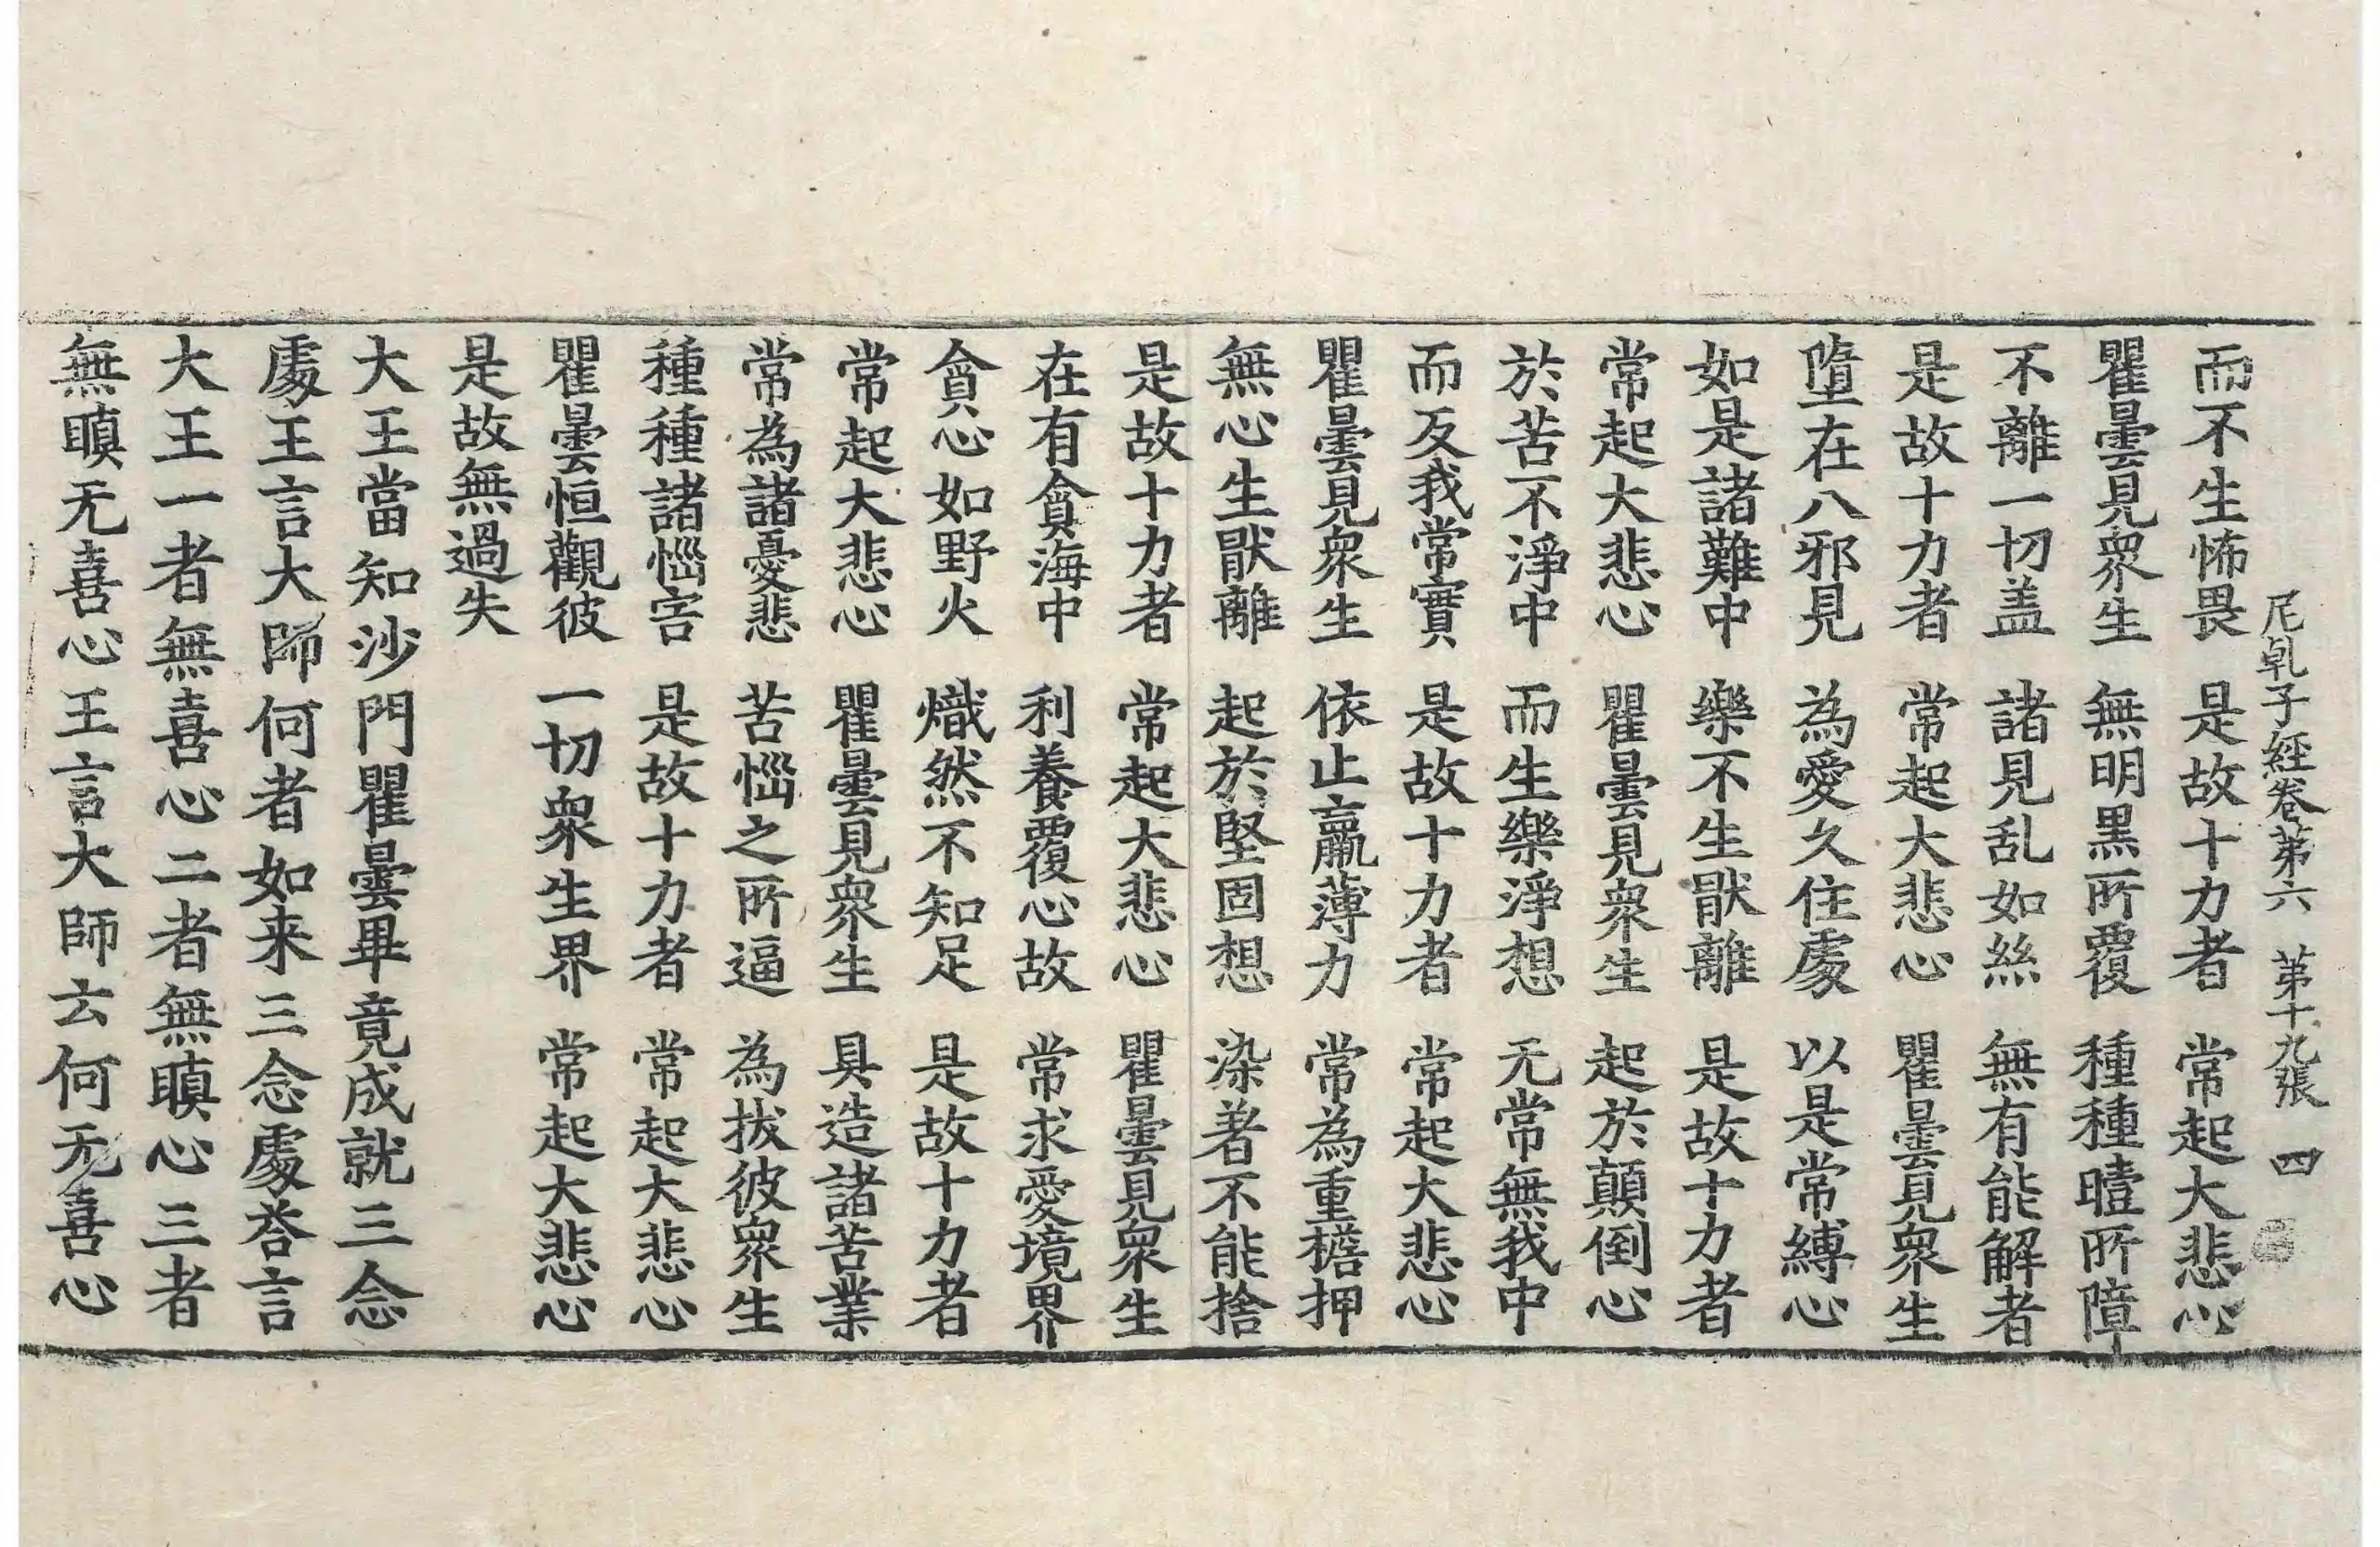 尼乹子經卷苐六　苐十九張　四
而不生怖畏　是故十力者　常起大悲心
瞿曇見衆生　無明黒所覆　種種曀所障
不離一切盖　諸見乱如絲　無有能解者
是故十力者　常起大悲心　瞿曇見衆生
墮在八邪見　為愛久住處　以是常縛心
如是諸難中　樂不生猒離　是故十力者
常起大悲心　瞿曇見衆生　起於顛倒心
於苦不淨中　而生樂淨想　无常無我中
而反我常實　是故十力者　常起大悲心
瞿曇見衆生　依止羸薄力　常為重擔押
無心生猒離　起於堅固想　染著不能捨
是故十力者　常起大悲心　瞿曇見衆生
在有貪海中　利養覆心故　常求愛境界
貪心如野火　熾然不知足　是故十力者
常起大悲心　瞿曇見衆生　具造諸苦業
常為諸憂悲　苦惱之所逼　為拔彼衆生
種種諸惱害　是故十力者　常起大悲心
瞿曇恒觀彼　一切衆生界　常起大悲心
是故無過失
大王當知沙門瞿曇畢竟成就三念
處王言大師何者如来三念處荅言
大王一者無喜心二者無瞋心三者
無瞋无喜心王言大師云何无喜心